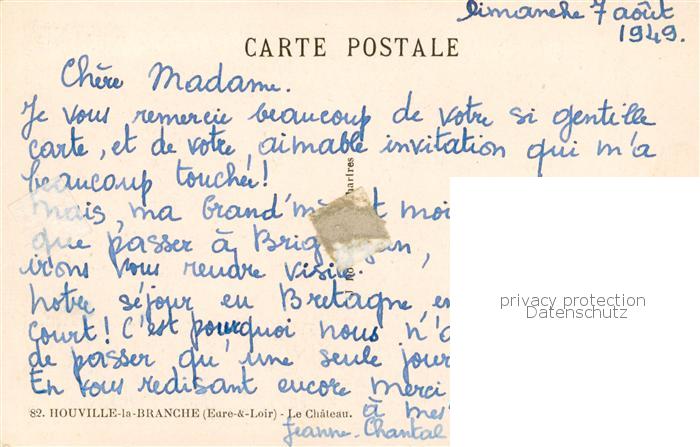 Dimanche 7 août
1949.
CARTE POSTALE
Chère Madame.
Je vous remercie beaucoup de votre si gentille
carte, et de votre aimable invitation qui m'a
beaucoup touchée!
Mais, ma Grand'mère et moi
que passer à
irons vous rendre visite.
notre séjour en Bretagne,
court! C'est pourquoi nous
de passer qu'une seule jour
En vous redisant encore merci
82. HOUVILLE-la-BRANCHE (Eure-&-Loir) - Le Château.
à mes
Jeanne-Chantal
privacy protection
Datenschutz